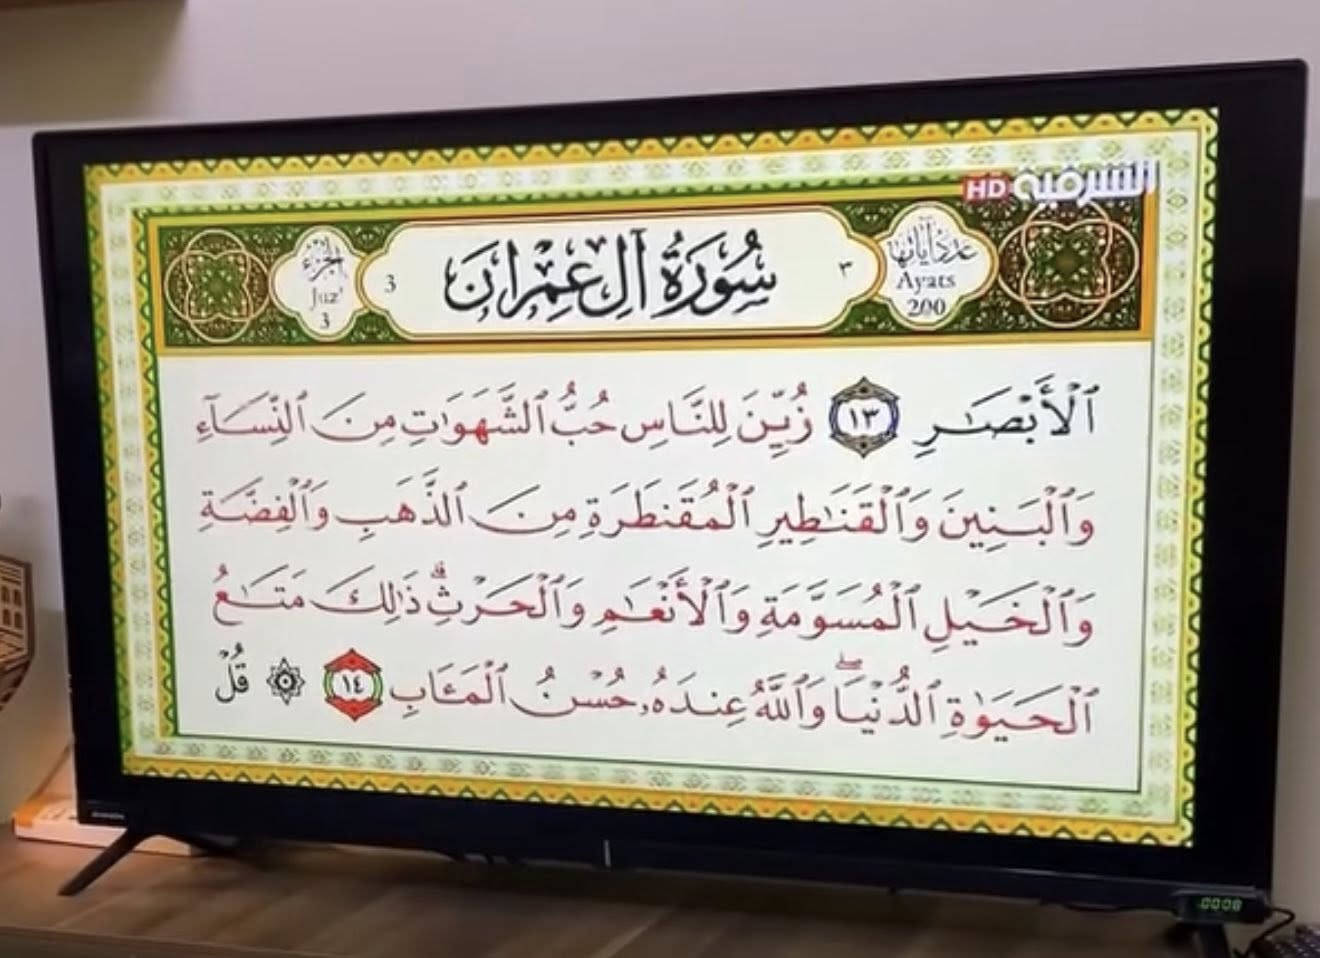 HD الشرقية
الجزء
Juz'
3
3
سُورَةُ آلِ عِمْرَانَ
٣
عدد آياتها
Ayats
200
ٱلْأَبْصَـٰرِ ١٣ زُيِّنَ لِلنَّاسِ حُبُّ ٱلشَّهَوَٰتِ مِنَ ٱلنِّسَآءِ
وَٱلْبَنِينَ وَٱلْقَنَـٰطِيرِ ٱلْمُقَنطَرَةِ مِنَ ٱلذَّهَبِ وَٱلْفِضَّةِ
وَٱلْخَيْلِ ٱلْمُسَوَّمَةِ وَٱلْأَنْعَـٰمِ وَٱلْحَرْثِ ۗ ذَٰلِكَ مَتَـٰعُ
ٱلْحَيَوٰةِ ٱلدُّنْيَا ۖ وَٱللَّهُ عِندَهُۥ حُسْنُ ٱلْمَـَٔابِ ١٤ ۞ قُلْ
0008